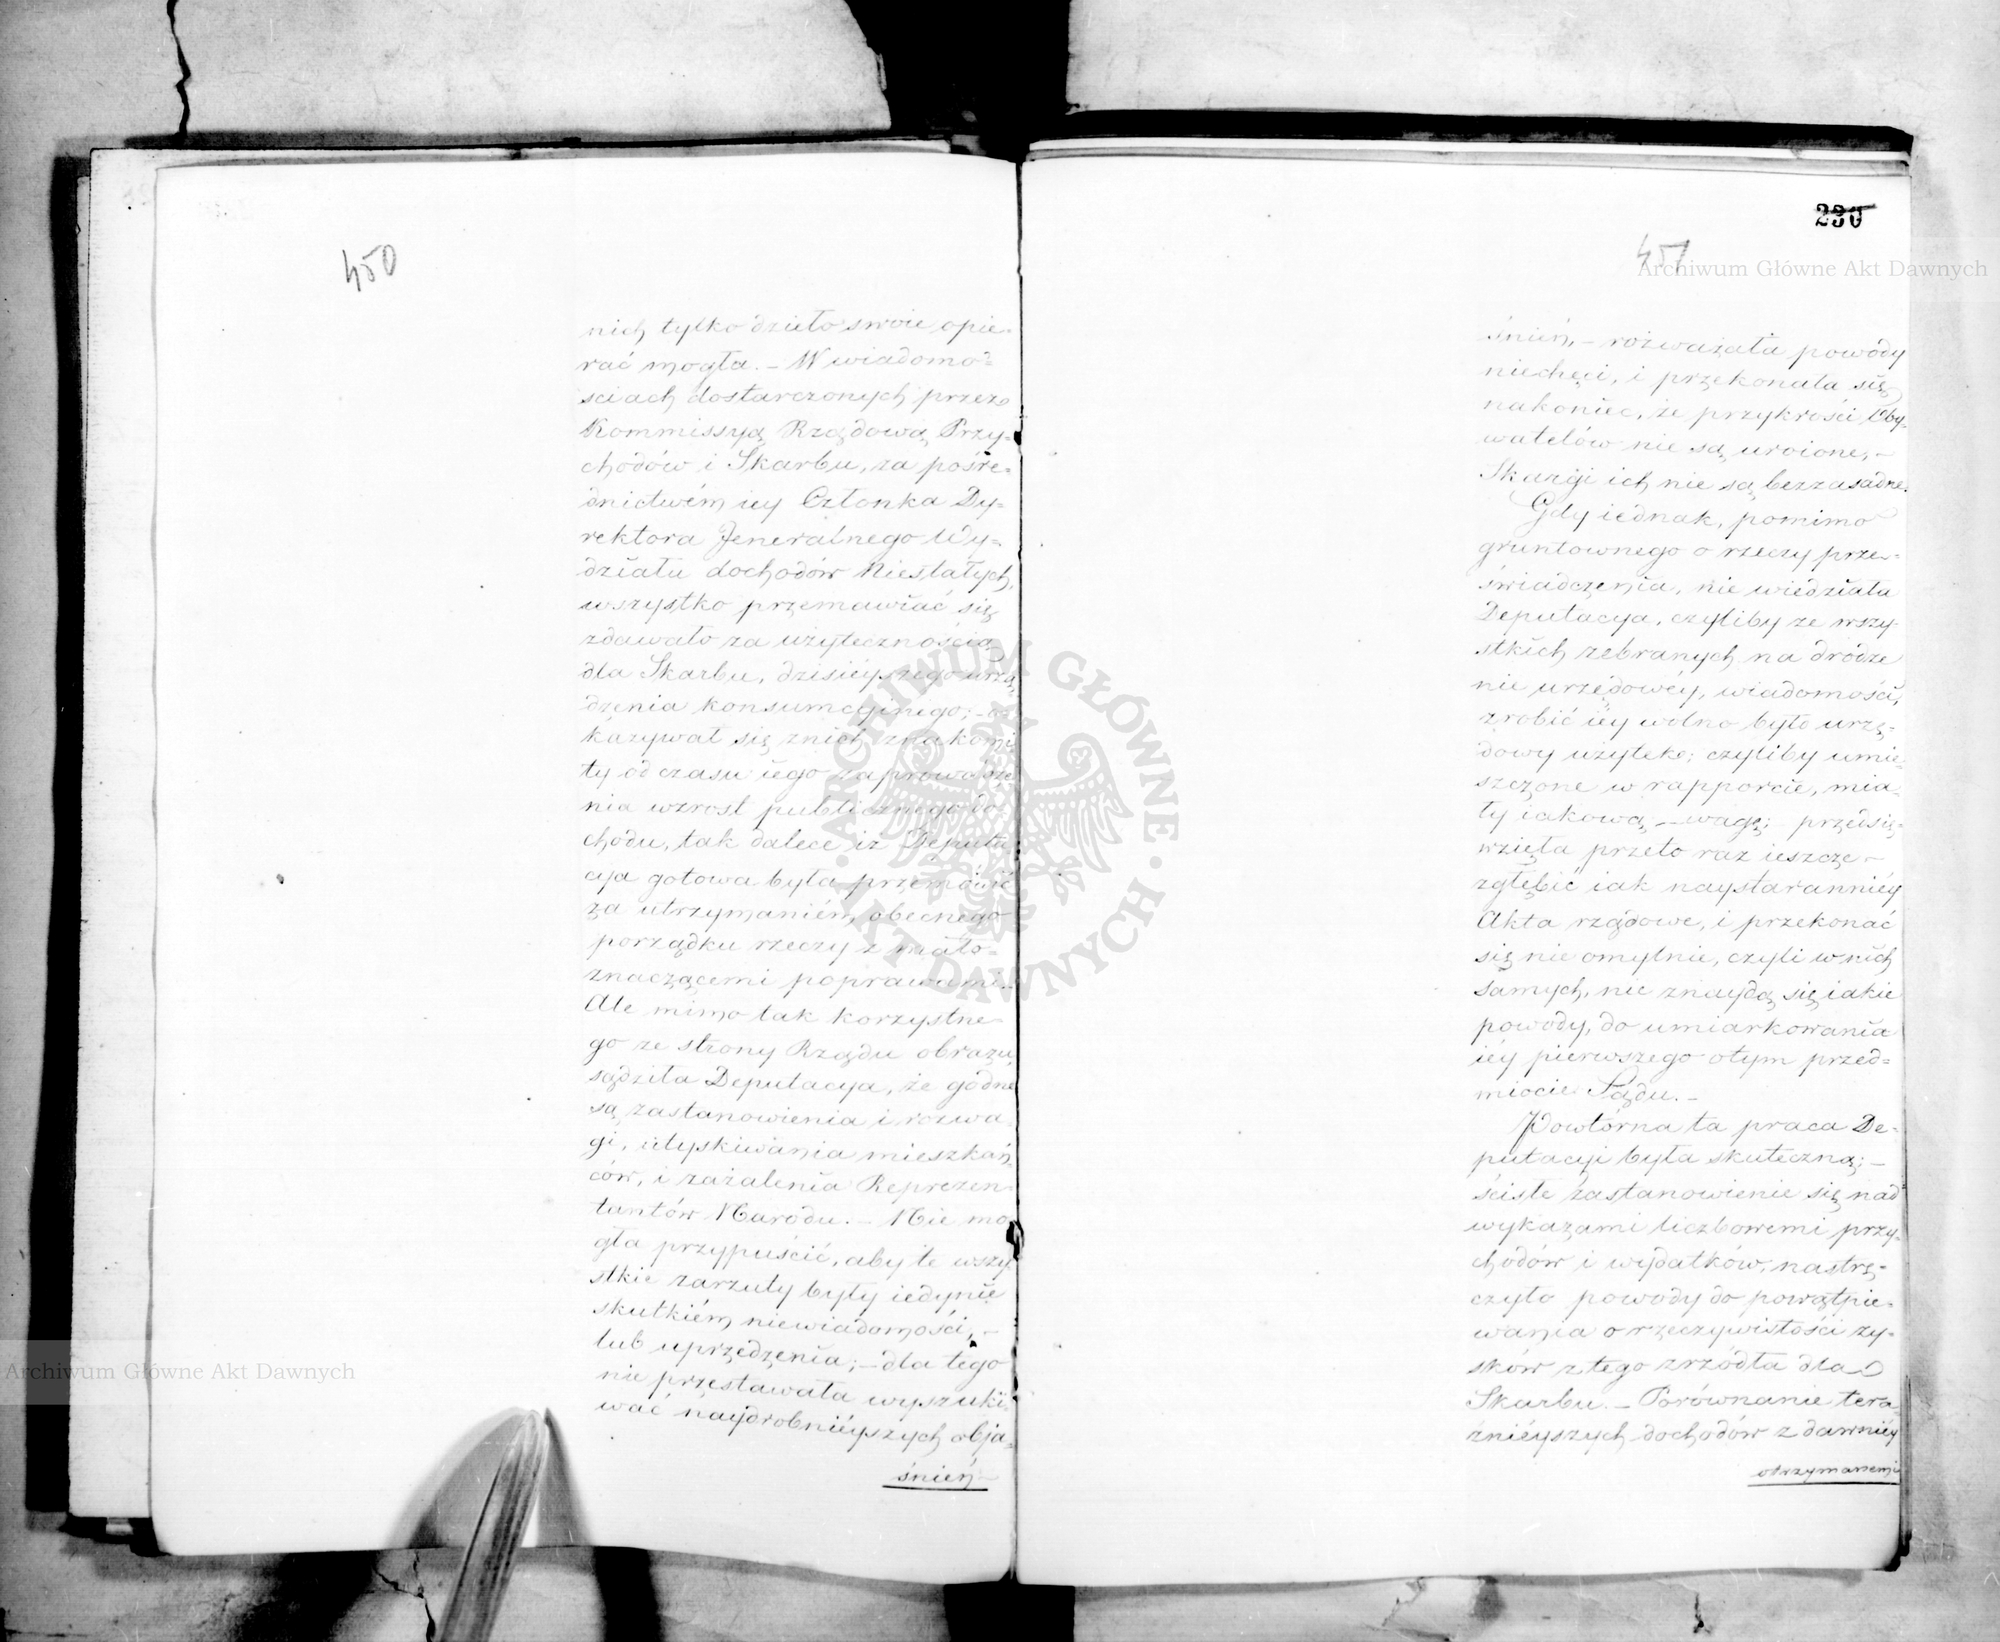 450
nich tylko dzieło swoie opie-
rać mogła. – W wiadomo-
ściach dostarczonych przez
Kommissyą Rządową Przy-
chodów i Skarbu, za pośre-
dnictwém iey Członka Dy-
rektora Jeneralnego Wy-
działu dochodów Niestałych,
wszystko przemawiać się
zdawało za użytecznością
dla Skarbu, dzisiéyszego urzą-
dzenia konsumcyinego; – o-
kazywał się znich znakomi-
ty od czasu iego zaprowadze-
nia wzrost publicznego do-
chodu, tak dalece iż Deputa-
cya gotowa była przemówić
za utrzymaniém obecnego
porządku rzeczy z mało-
znaczącemi poprawami. –
Ale mimo tak korzystne-
go ze strony Rządu obrazu,
sądziła Deputacya, że godne
są zastanowienia i rozwa-
gi, utyskiwania mieszkań-
ców, i zażalenia Reprezen-
tantów Narodu. – Nie mo-
gła przypuścić, aby te wszy-
stkie zarzuty były iedynie
skutkiém niewiadomości, –
lub uprzedzenia; – dla tego
nie przestawała wyszuki-
wać náydrobniéyszych obja-
śnień
230
451
śnień, – rozważała powody
niechęci, i przekonała się
nakoniec, że przykrości Oby-
watelów nie są uroione, –
Skargi ich nie są bezzasadne.
Gdy iednak, pomimo
gruntownego o rzeczy prze-
świadczenia, nie wiedziała
Deputacya, czyliby ze wszy-
stkich zebranych na drodze
nie urzędowéy, wiadomości,
zrobić iéy wolno było urzę-
dowy użytek; czyliby umie-
szczone w rapporcie, mia-
ły iakową – wagę; – przedsię-
wzięła przeto raz ieszcze –
zgłębić iak naystaranniéy
Akta rządowe, i przekonać
się nie omylnie, czyli w nich
samych, nie znaydą się iakie
powody, do umiarkowania
iéy pierwszego otym przed-
miocie Sądu. –
Powtórna ta praca De-
putacyi była skuteczną; –
ściste zastanowienie się nad
wykazami liczbowemi przy-
chodów i wydatków, nastrę-
czyło powody do powątpie-
wania o rzeczywistości zy-
sków z tego zrzódła dla
Skarbu. – Porównanie tera-
źniéyszych dochodów z dawniéy
otrzymanemi
Archiwum Główne Akt Dawnych
ARCHIWUM GŁÓWNE · AKT DAWNYCH ·
Archiwum Główne Akt Dawnych